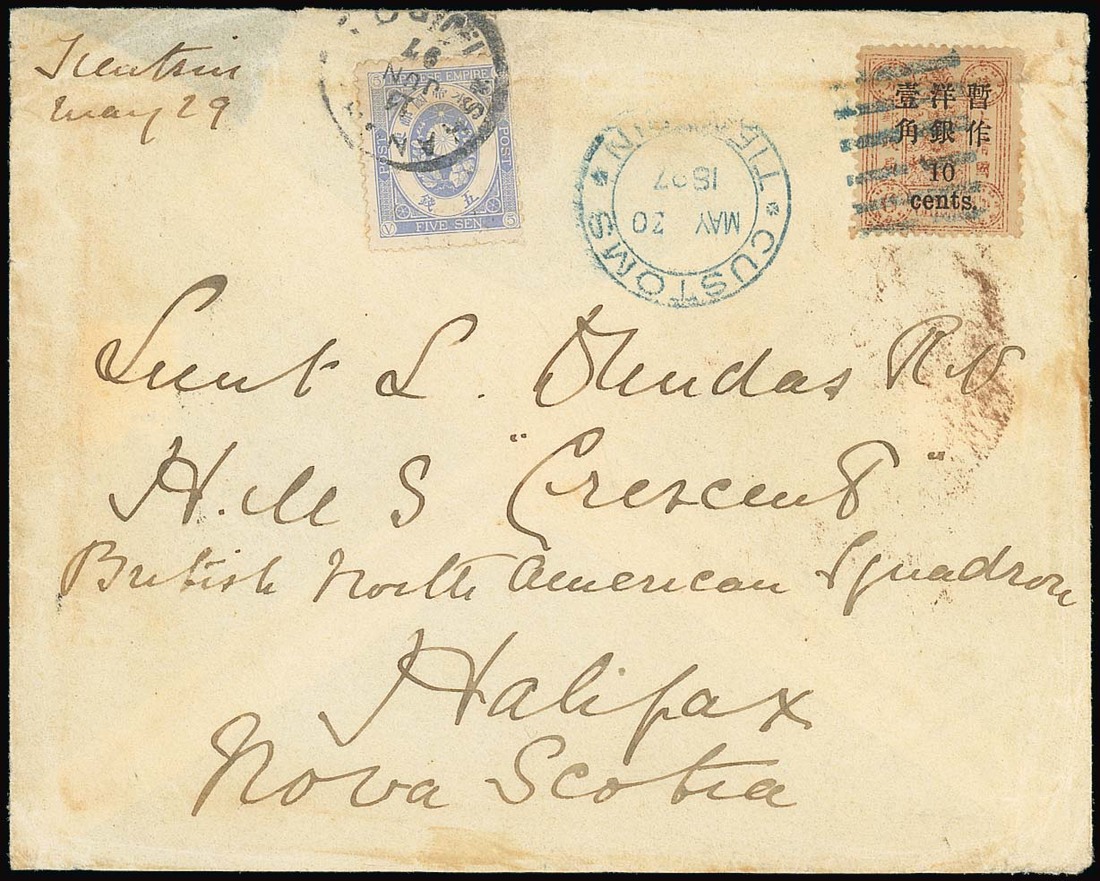 Tientsin
May 29
JAPANESE EMPIRE
POST
POST
五
銭
FIVE SEN
5
5
V
97
JUN
TIENTSIN
CUSTOMS
MAY 30
1897
暫作
洋銀
壹角
10
cents.
Lieut L. Dundas RN
H.M S "Crescent"
British North American Squadron
Halifax
Nova Scotia